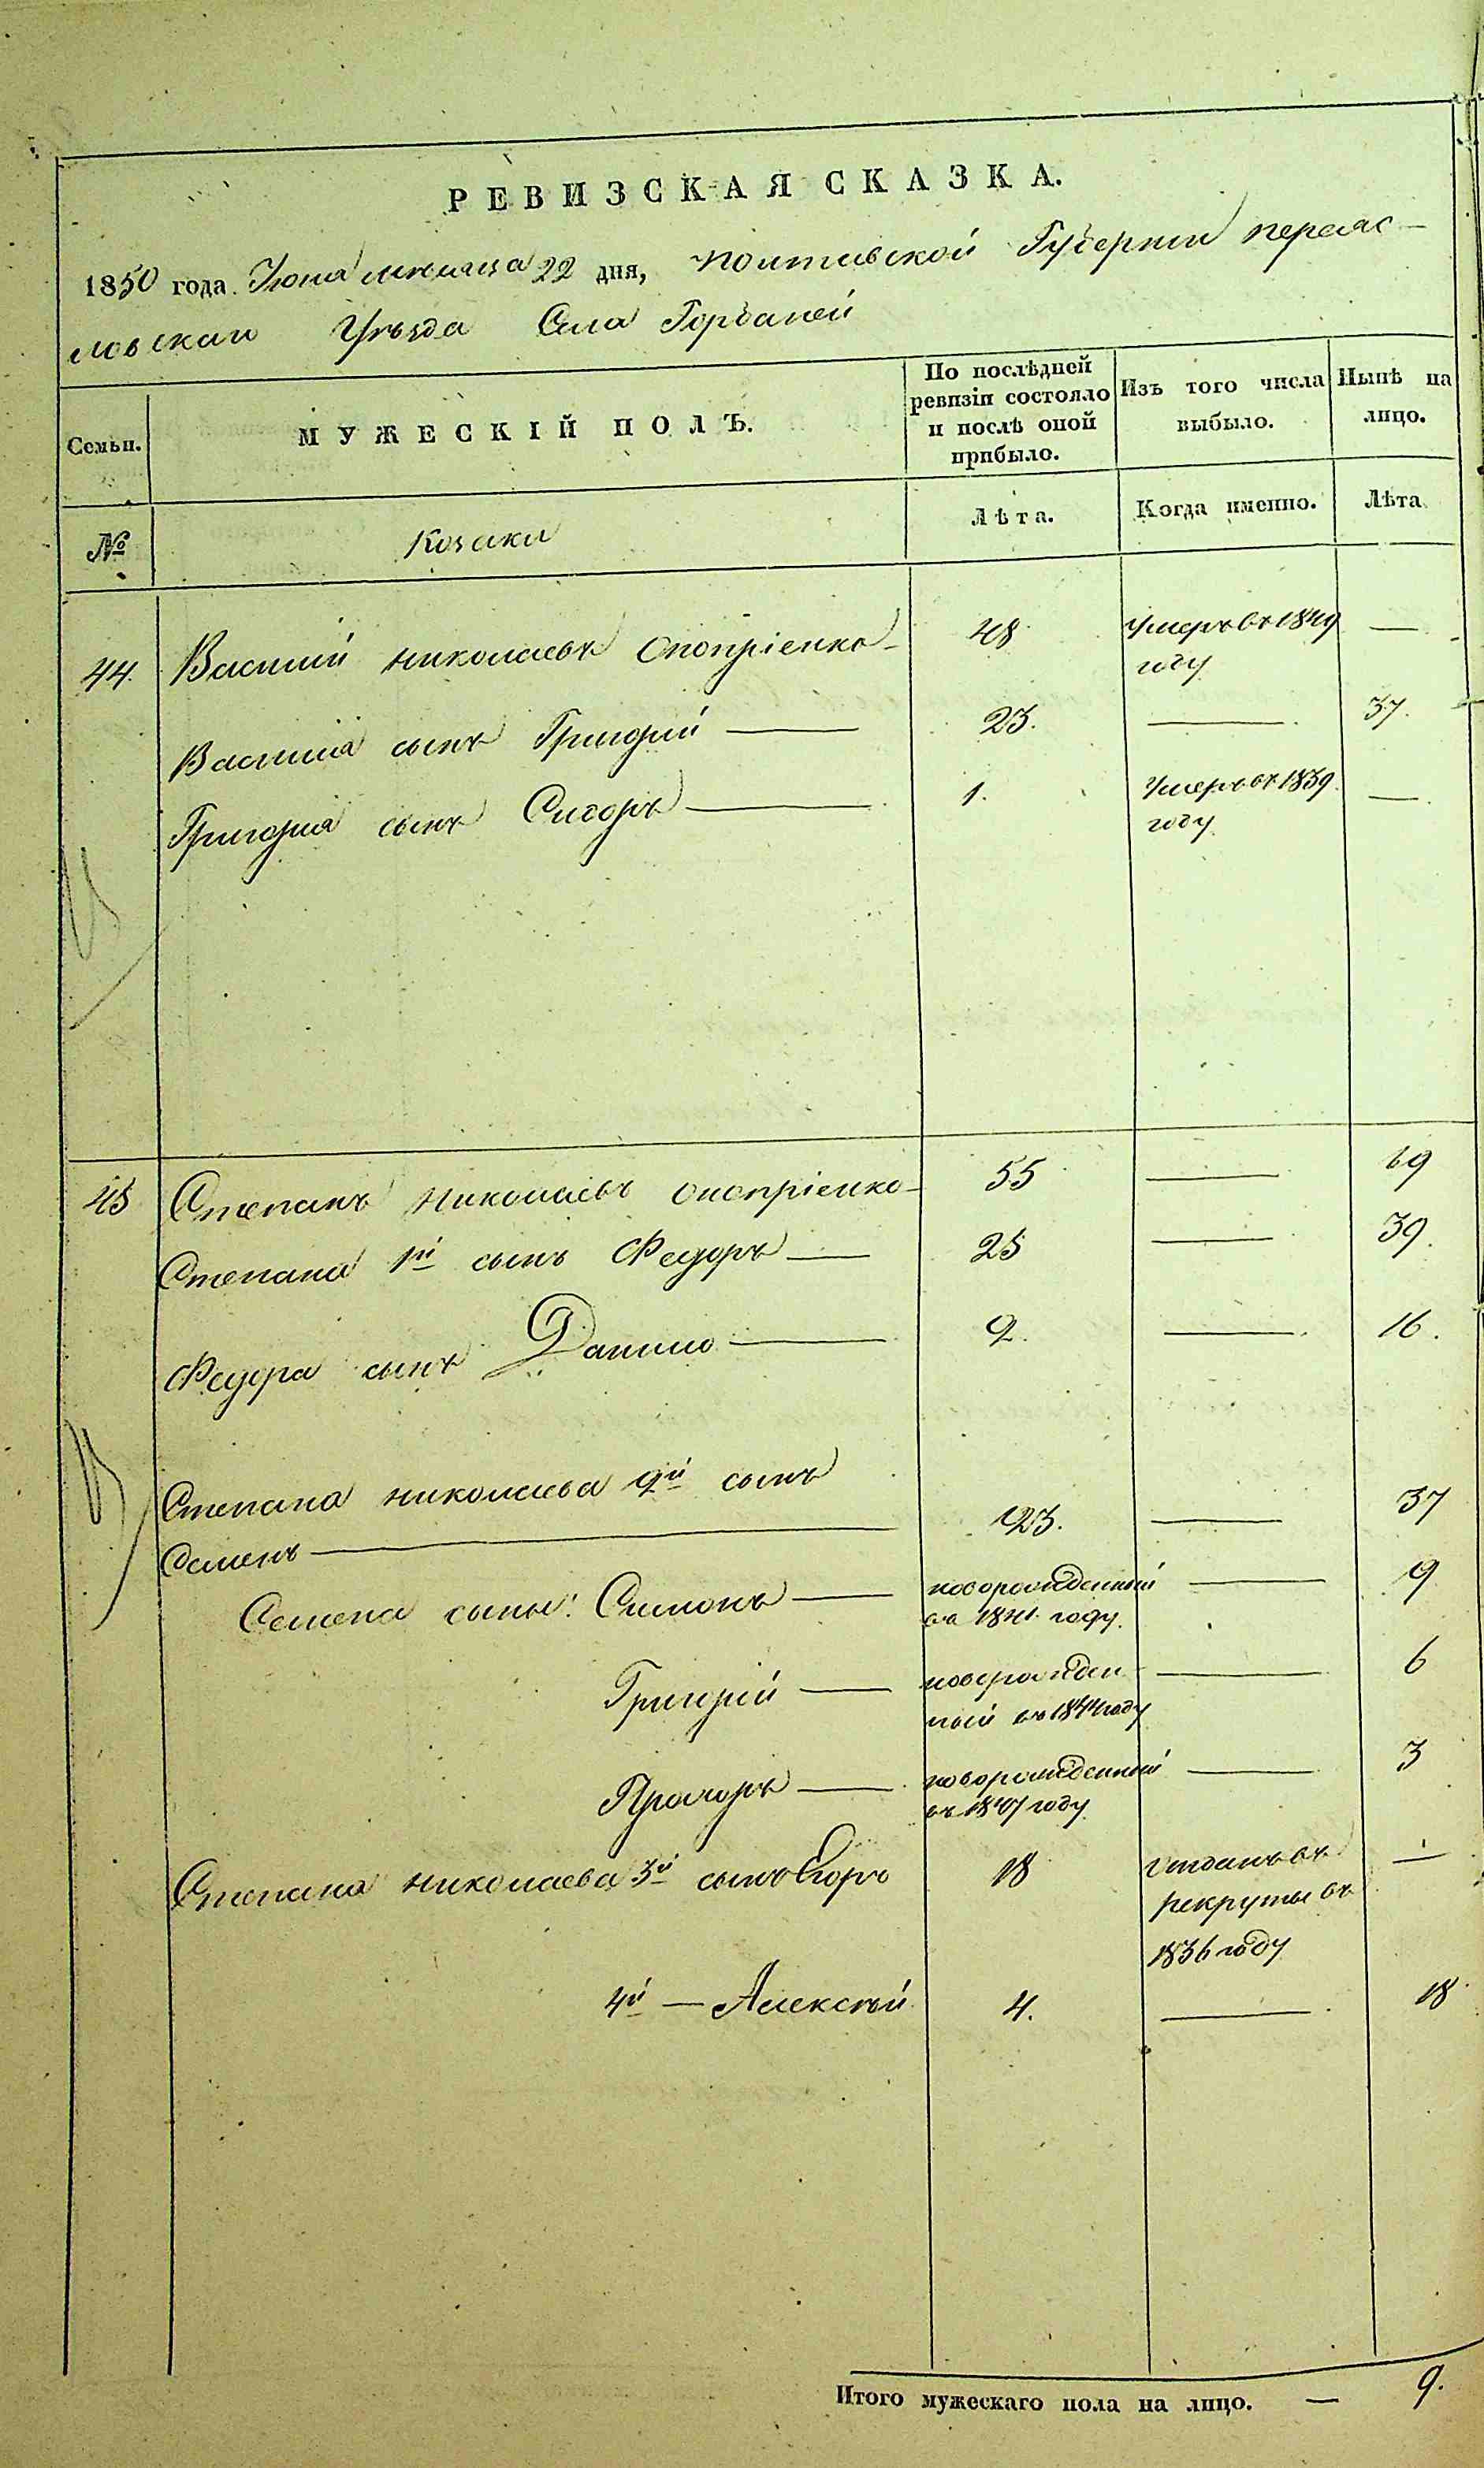 РЕВИЗСКАЯ СКАЗКА.
1850 года Июня месяца 22 дня, Полтавской Губернии Переяс-
ловскаго Уѣзда Села Горбаней
Семьи.
МУЖЕСКІЙ ПОЛЪ.
По послѣдней ревизіи состояло и послѣ оной прибыло.
Изъ того числа выбыло.
Нынѣ на лицо.
№
Козаки
Лѣта.
Когда именно.
Лѣта
44. Василий Николаевъ Оноприенко 48 Умеръ въ 1849 году —
Василия сынъ Григорий — 23. — 37.
Григория сынъ Сидоръ — 1. Умеръ въ 1839 году —
45 Степанъ Николаевъ Оноприенко 55 — 69
Степана 1й сынъ Федоръ — 25 — 39.
Федора сынъ Данило — 2. — 16.
Степана Николаева 2й сынъ
Семенъ — 23. — 37
Семена сыны: Симонъ — новорожденный въ 1841 году. — 9
Григорій — новорожденный въ 1844 году — 6
Прохоръ — новорожденный въ 1847 году — 3
Степана Николаева 3й сынъ Егоръ 18 Отданъ въ рекруты въ 1836 году —
4й — Алексѣй 4. — 18
Итого мужескаго пола на лицо. — 9.